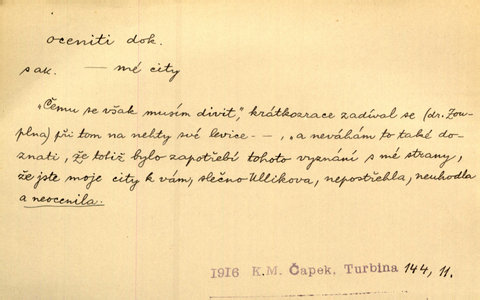 oceniti dok.
sak. — mé city
„Čemu se však musím divit," krátkozrace zadíval se (dr. Zou-
plna) při tom na nehty své levice - – , „a neváhám to také do-
znati, že totiž bylo zapotřebí tohoto vyznání s mé strany,
že jste moje city k vám, slečno Ullikova, nepostřehla, neuhodla
a neocenila.
1916 K.M. Čapek, Turbina 144, 11.